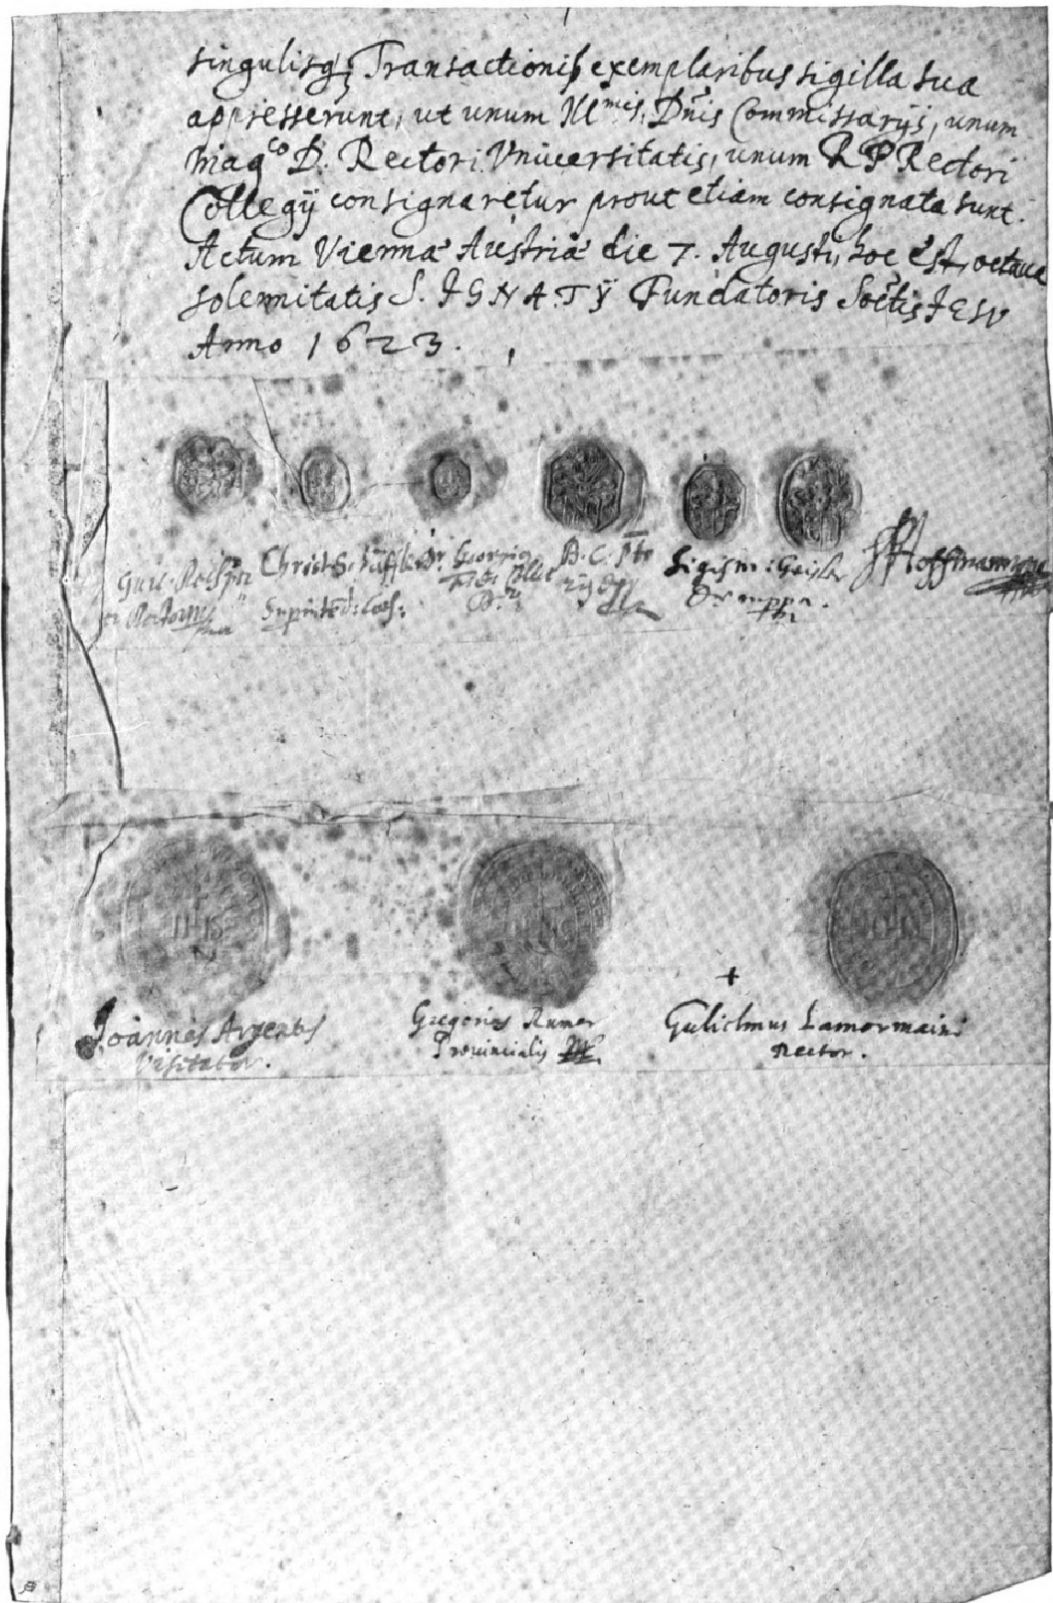 singulisq3 Transactionis exemplaribus sigilla sua
appresserunt, ut unum Illmis. Dnis Commissarijs, unum
Magco D. Rectori Vniversitatis, unum R P Rectori
Collegij consignaretur prout etiam consignata sunt.
Actum Viennæ Austriæ die 7. Augusti, hoc est, octava
solemnitatis S. IGNATIJ Fundatoris Soctis IESV
Anno 1623.
Christ: 
Sigism: Geisler
Hoffmann
Joannes Argentus
Visitator.
Gregorius Rumer
Provincialis
+
Gulielmus Lamormaini
Rector.